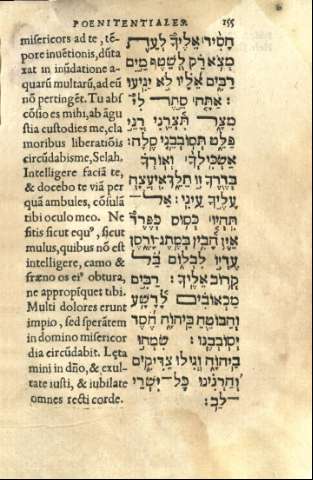 POENITENTIALES 155
misericors ad te, tē-
pore inuētionis, dūta
xat in inūdatione a-
quarū multarū, ad eū
nō pertingēt. Tu abs
cōsio es mihi, ab āgu
stia custodies me, cla
moribus liberatiōis
circūdabisme, Selah.
Intelligere faciā te,
& docebo te viā per
quā ambules, cōsulā
tibi oculo meo. Ne
sitis sicut equꝰ, sicut
mulus, quibus nō est
intelligere, camo &
fræno os eiꝰ obtura,
ne appropiquet tibi.
Multi dolores erunt
impio, sed sperātem
in domino misericor
dia circūdabit. Lęta
mini in dn̄o, & exul-
tate iusti, & iubilate
omnes recti corde.
חָסִיד אֵלֶיךָ לְעֵת
מְצֹא רַק לְשֵׁטֶף מַיִם
רַבִּים אֵלָיו לֹא יַגִּיעוּ׃
אַתָּה סֵתֶר לִי
מִצַּר תִּצְּרֵנִי רָנֵּי
פַלֵּט תְּסוֹבְבֵנִי סֶלָה׃
אַשְׂכִּילְךָ וְאוֹרְךָ
בְּדֶרֶךְ זוּ תֵלֵךְ אִיעֲצָה
עָלֶיךָ עֵינִי׃ אַל־
תִּהְיוּ כְּסוּס כְּפֶרֶד
אֵין הָבִין בְּמֶתֶג וָרֶסֶן
עֶדְיוֹ לִבְלוֹם בַּל
קְרוֹב אֵלֶיךָ׃ רַבִּים
מַכְאוֹבִים לָרָשָׁע
וְהַבּוֹטֵחַ בַּיהוָה חֶסֶד
יְסוֹבְבֶנּוּ׃ שִׂמְחוּ
בַיהוָה וְגִילוּ צַדִּיקִים
וְהַרְנִינוּ כָּל־יִשְׁרֵי
לֵב׃